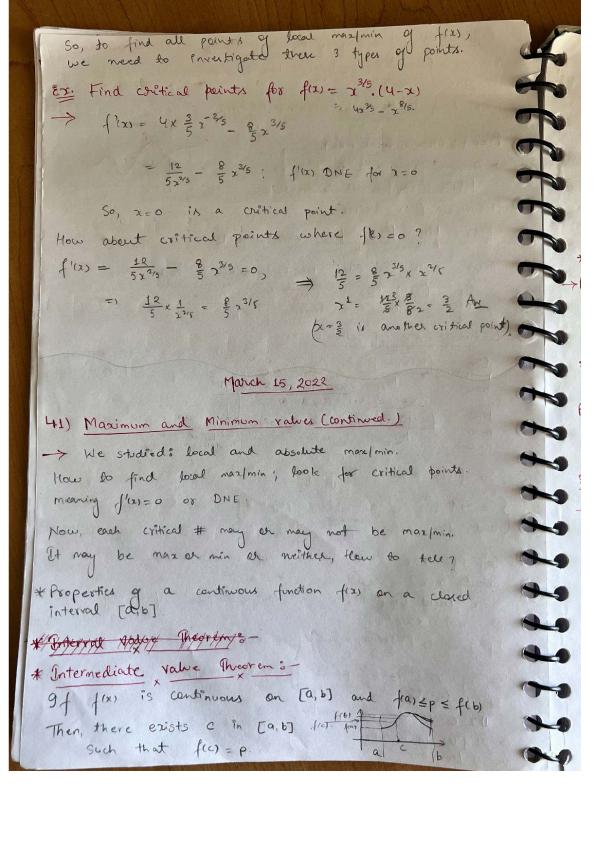 So, to find all points of local max/min of f(x),
we need to investigate these 3 types of points.
Ex. Find critical points for f(x) = x^3/5 . (4-x)
= 4x^3/5 - x^8/5.
→ f'(x) = 4 × 3/5 x^-2/5 - 8/5 x^3/5
= 12/5x^2/5 - 8/5 x^3/5 : f'(x) DNE for x=0
So, x=0 is a critical point.
How about critical points where f(x) = 0 ?
f'(x) = 12/5x^2/5 - 8/5 x^3/5 = 0,
⇒ 12/5 × 1/x^2/5 = 8/5 x^3/5
⇒ 12/5 = 8/5 x^3/5 × x^2/5
x^1 = 12 3/5 × 5/8 2 = 3/2 Ans
(x = 3/2 is another critical point).
March 15, 2022
4.1) Maximum and Minimum values (continued.)
→ We studied: local and absolute max/min.
How to find local max/min; look for critical points.
meaning f'(x)=0 or DNE.
Now, each critical # may or may not be max/min.
It may be max or min or neither, How to tell ?
* Properties of a continuous function f(x) on a closed
interval [a,b]
* Interval Value Theorem:-
* Intermediate Value Theorem:-
If f(x) is continuous on [a,b] and f(a) ≤ p ≤ f(b)
Then, there exists c in [a,b]
such that f(c) = p.
f(b)
f(c)
f(a)
a c b